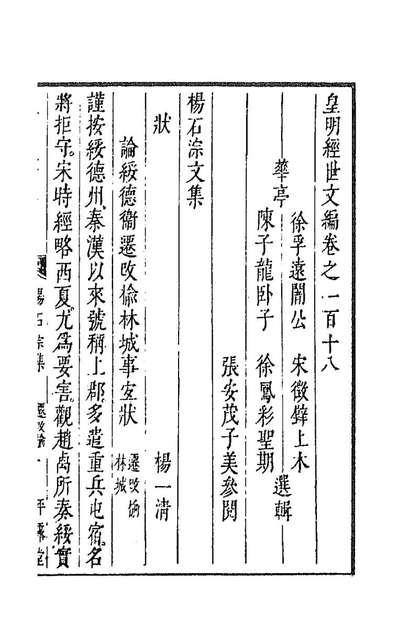 皇明經世文編卷之一百十八
華亭
徐孚遠闇公 宋徵璧上木
陳子龍卧子 徐鳳彩聖期
選輯
張安茂子美參閱
楊石淙文集
狀 楊一清
論綏德衞遷改榆林城事宜狀 遷改榆林城
謹按綏德州秦漢以來號稱上郡多遣重兵屯宿名
將拒守宋時經略西夏尤爲要害觀趙卨所奏綏實
楊石淙集 平露堂